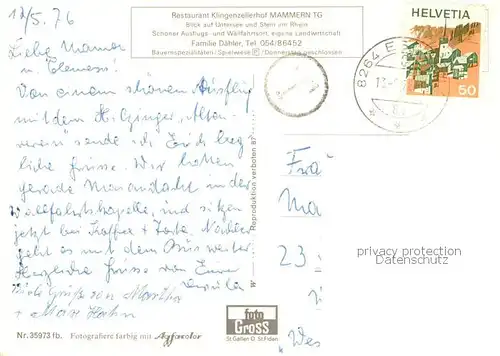 12/5. 76
Restaurant Klingenzellerhof MAMMERN TG
Blick auf Untersee und Stein am Rhein
Schöner Ausflugs- und Wallfahrtsort, eigene Landwirtschaft
Familie Dähler, Tel. 054/86452
Bauernspezialitäten / Spielwiese P / Donnerstag geschlossen
HELVETIA
50
8264 E
13.
Liebe Mammer
u. Clemens!
Von einem schönen Ausflug
mit dem
verein sende ich Euch herz
liche Grüsse. Wir hatten
gerade Maiandacht in der
Wallfahrtskapelle, und sitzen
jetzt bei Kaffee + Torte. Nachher
geht es mit dem Bus weiter
Herzliche Grüsse von Eurer
Ursula
Viele Grüße von Martha
+ Max Hahn
Reproduktion verboten 87
W
Fra
Ma
23
Wes
privacy protection
Datenschutz
foto
GROSS
St. Gallen O. St. Fiden
Nr. 35973 fb. Fotografiert farbig mit Agfacolor